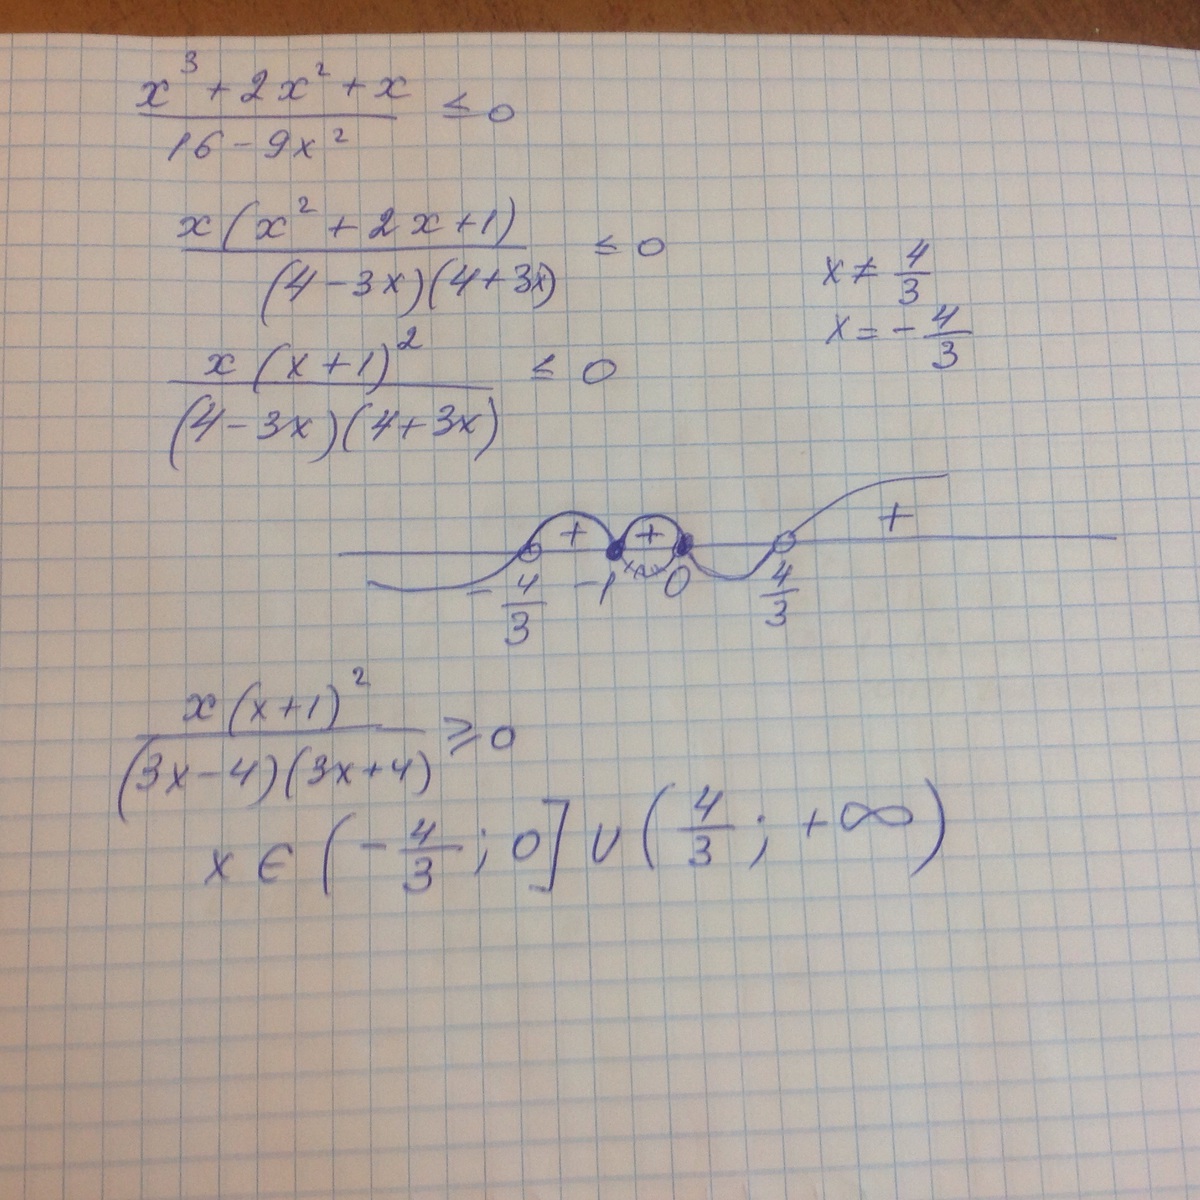 x³ + 2x² + x / 16 - 9x² ≤ 0
x(x² + 2x + 1) / (4 - 3x)(4 + 3x) ≤ 0
x ≠ 4/3
x = -4/3
x(x + 1)² / (4 - 3x)(4 + 3x) ≤ 0
+ + +
-4/3 -1 0 4/3
x(x+1)² / (3x-4)(3x+4) ≥ 0
x ∈ (-4/3; 0] ∪ (4/3; +∞)